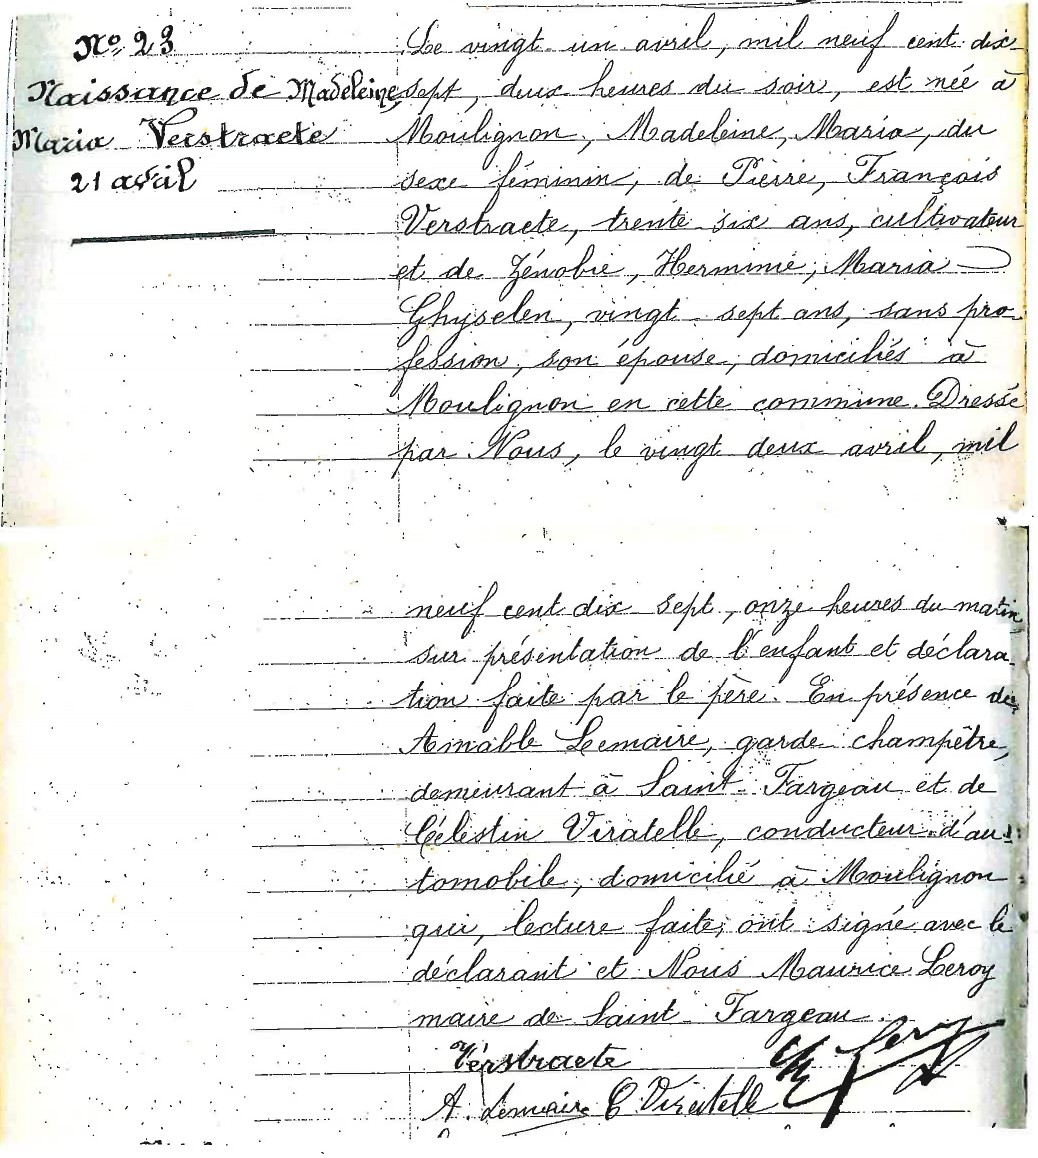 No 23
Naissance de Madeleine,
Maria Verstraete
21 avril
Le vingt un avril, mil neuf cent dix
sept, deux heures du soir, est née à
Moulignon, Madeleine, Maria, du
sexe féminin, de Pierre, François
Verstraete, trente six ans, cultivateur
et de Zénobie, Herminie, Maria
Ghyselen, vingt sept ans, sans pro-
fession, son épouse, domiciliés à
Moulignon en cette commune. Dressé
par Nous, le vingt deux avril, mil
neuf cent dix sept, onze heures du matin,
sur présentation de l'enfant et déclara-
tion faite par le père. En présence de
Amable Lemaire, garde champêtre,
demeurant à Saint-Fargeau et de
Célestin Viratelle, conducteur d'au-
tomobile, domicilié à Moulignon
qui, lecture faite, ont signé avec le
déclarant et Nous Maurice Leroy
maire de Saint-Fargeau.
Verstraete
Leroy
A. Lemaire C. Viratelle